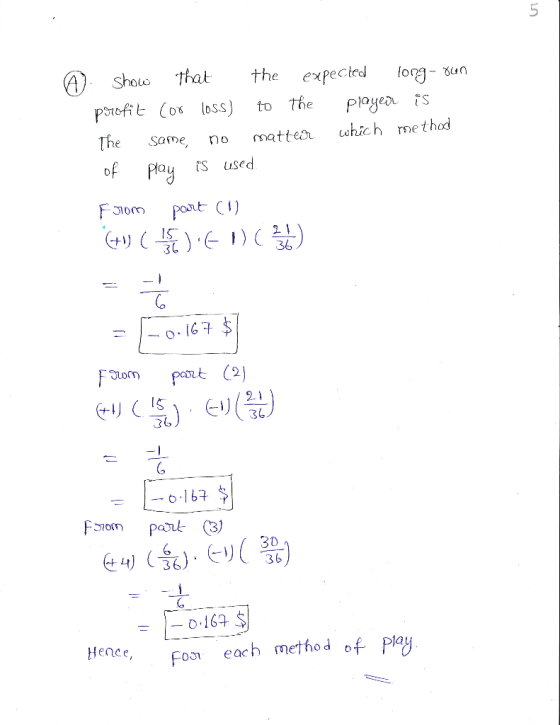 5
(A). Show that the expected long-run
profit (or loss) to the player is
The same, no matter which method
of play is used.
From part (1)
(+1) (15/36) · (-1) (21/36)
= -1/6
= -0.167 $
From part (2)
(+1) (15/36) · (-1) (21/36)
= -1/6
= -0.167 $
From part (3)
(+4) (6/36) · (-1) (30/36)
= -1/6
= -0.167 $
Hence, for each method of play.